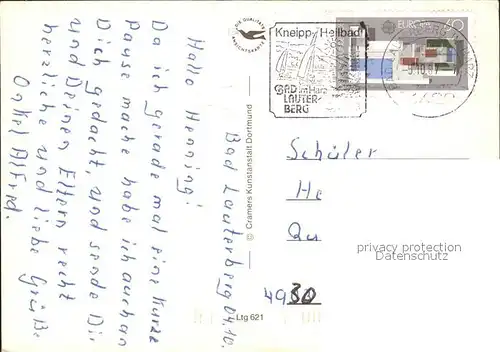 Bad Lauterberg 04.10.
Hallo Henning!
Da ich gerade mal eine Kurze
Pause mache habe ich auch an
Dich gedacht, und sende Dir
und Deinen Eltern recht
herzliche und liebe Grüße
Onkel Alfred.
DIE QUALITÄTS
ANSICHTSKARTE
© Cramers Kunstanstalt Dortmund
Ltg 621
Kneipp-Heilbad
BAD im Harz
LAUTER-
BERG
EUROPA
60
Schüler
He
Qu
4930
privacy protection
watermark